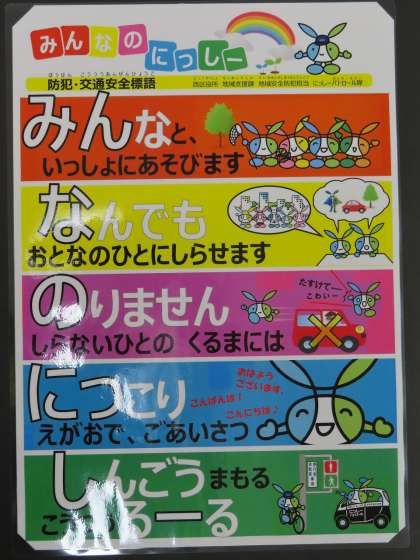 みんなのにっしー
ぼうはん こうつうあんぜんひょうご
防犯・交通安全標語
西区役所 地域支援課 地域安全防犯担当 にっしーパトロール隊
みんなと、
いっしょにあそびます
なんでも
おとなのひとにしらせます
のりません
しらないひとの くるまには
たすけてー
こわいー
にっこり
えがおで、ごあいさつ
おはよう
ございます。
こんばんは!
こんにちは♪
しんごうまもる
るーる